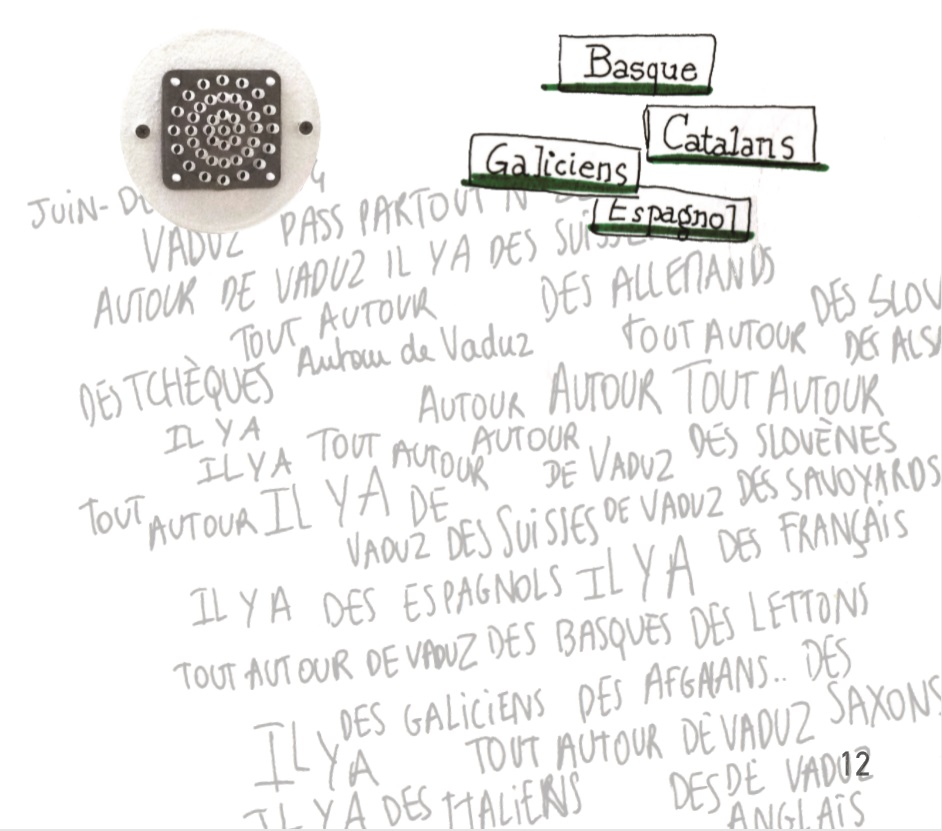 Basque
Catalans
Galiciens
Espagnol
JUIN-
VADUZ PASS PARTOUT N
AUTOUR DE VADUZ IL Y A DES
TOUT AUTOUR DES ALLEMANDS
Autour de Vaduz TOUT AUTOUR
DES TCHÈQUES AUTOUR AUTOUR TOUT AUTOUR
IL Y A
IL Y A TOUT AUTOUR AUTOUR DE VADUZ DES SLOVÈNES
TOUT AUTOUR IL Y A DE
VADUZ DES SUISSES DE VADUZ DES SAVOYARDS
IL Y A DES ESPAGNOLS IL Y A DES FRANÇAIS
TOUT AUTOUR DE VADUZ DES BASQUES DES LETTONS
IL Y A DES GALICIENS DES AFGAHANS.. DES
TOUT AUTOUR DE VADUZ SAXONS
IL Y A DES ITALIENS DES DE VADUZ
ANGLAIS
12